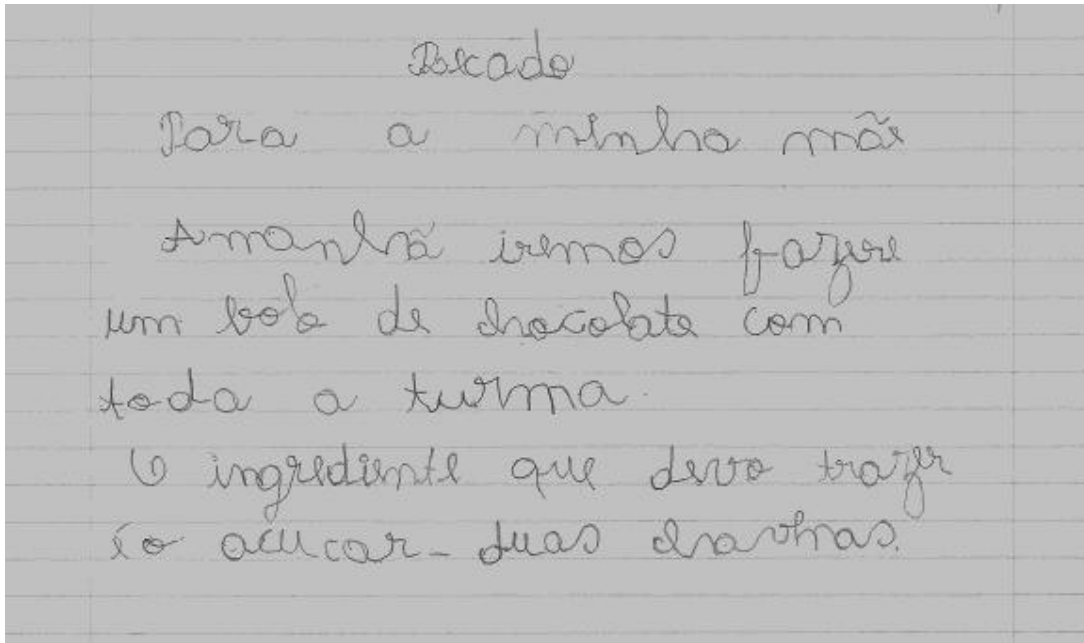 Recado
Para a minha mãe
Amanhã iremos fazere
um bolo de chocolate com
toda a turma.
O ingrediente que devo trazer
é o acucar - duas